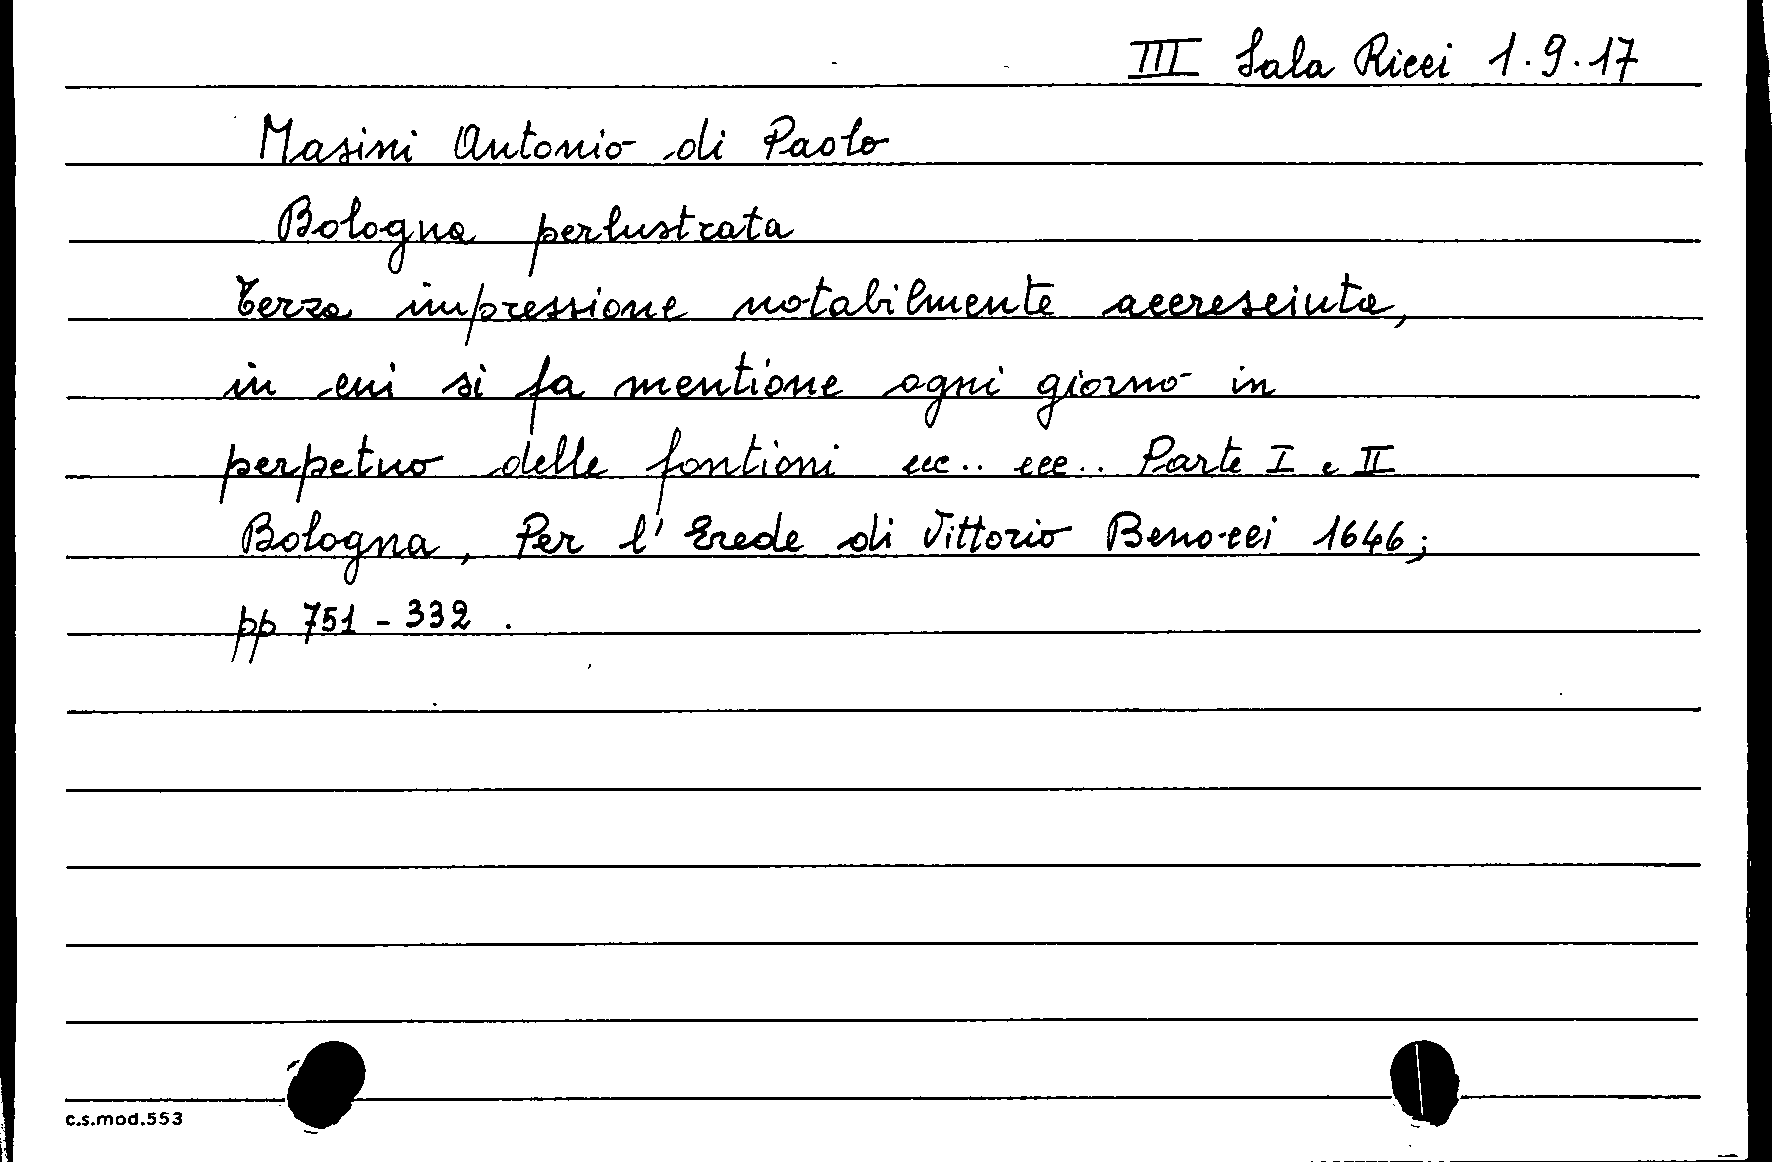 III Sala Ricci 1.9.17
Masini Antonio di Paolo
Bologna perlustrata
Terza impressione notabilmente accresciuta,
in cui si fa mentione ogni giorno in
perpetuo delle fontioni ecc.. ecc.. Parte I e II
Bologna, Per l'Erede di Vittorio Benacci 1646;
pp 751 - 332 .
c.s.mod.553